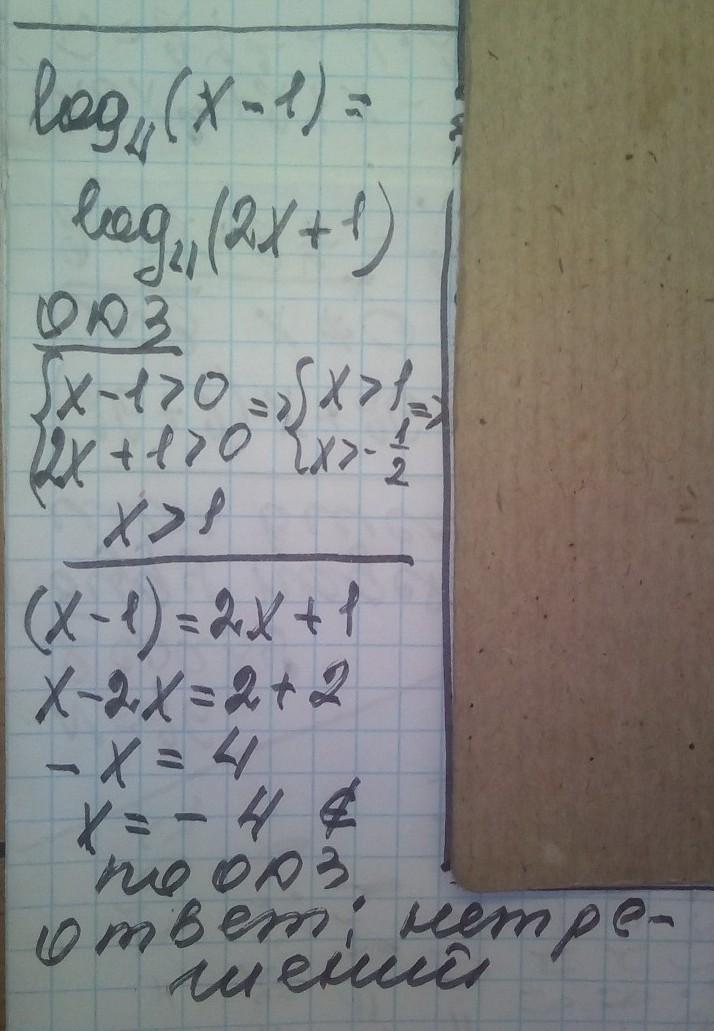 log₄(x-1)=
log₄(2x+1)
ОДЗ
{x-1>0 => {x>1 =>
{2x+1>0 {x>-1/2
x>1
(x-1)=2x+1
x-2x=2+2
-x=4
x=-4 ∉
по ОДЗ
ответ: нет ре-
шений